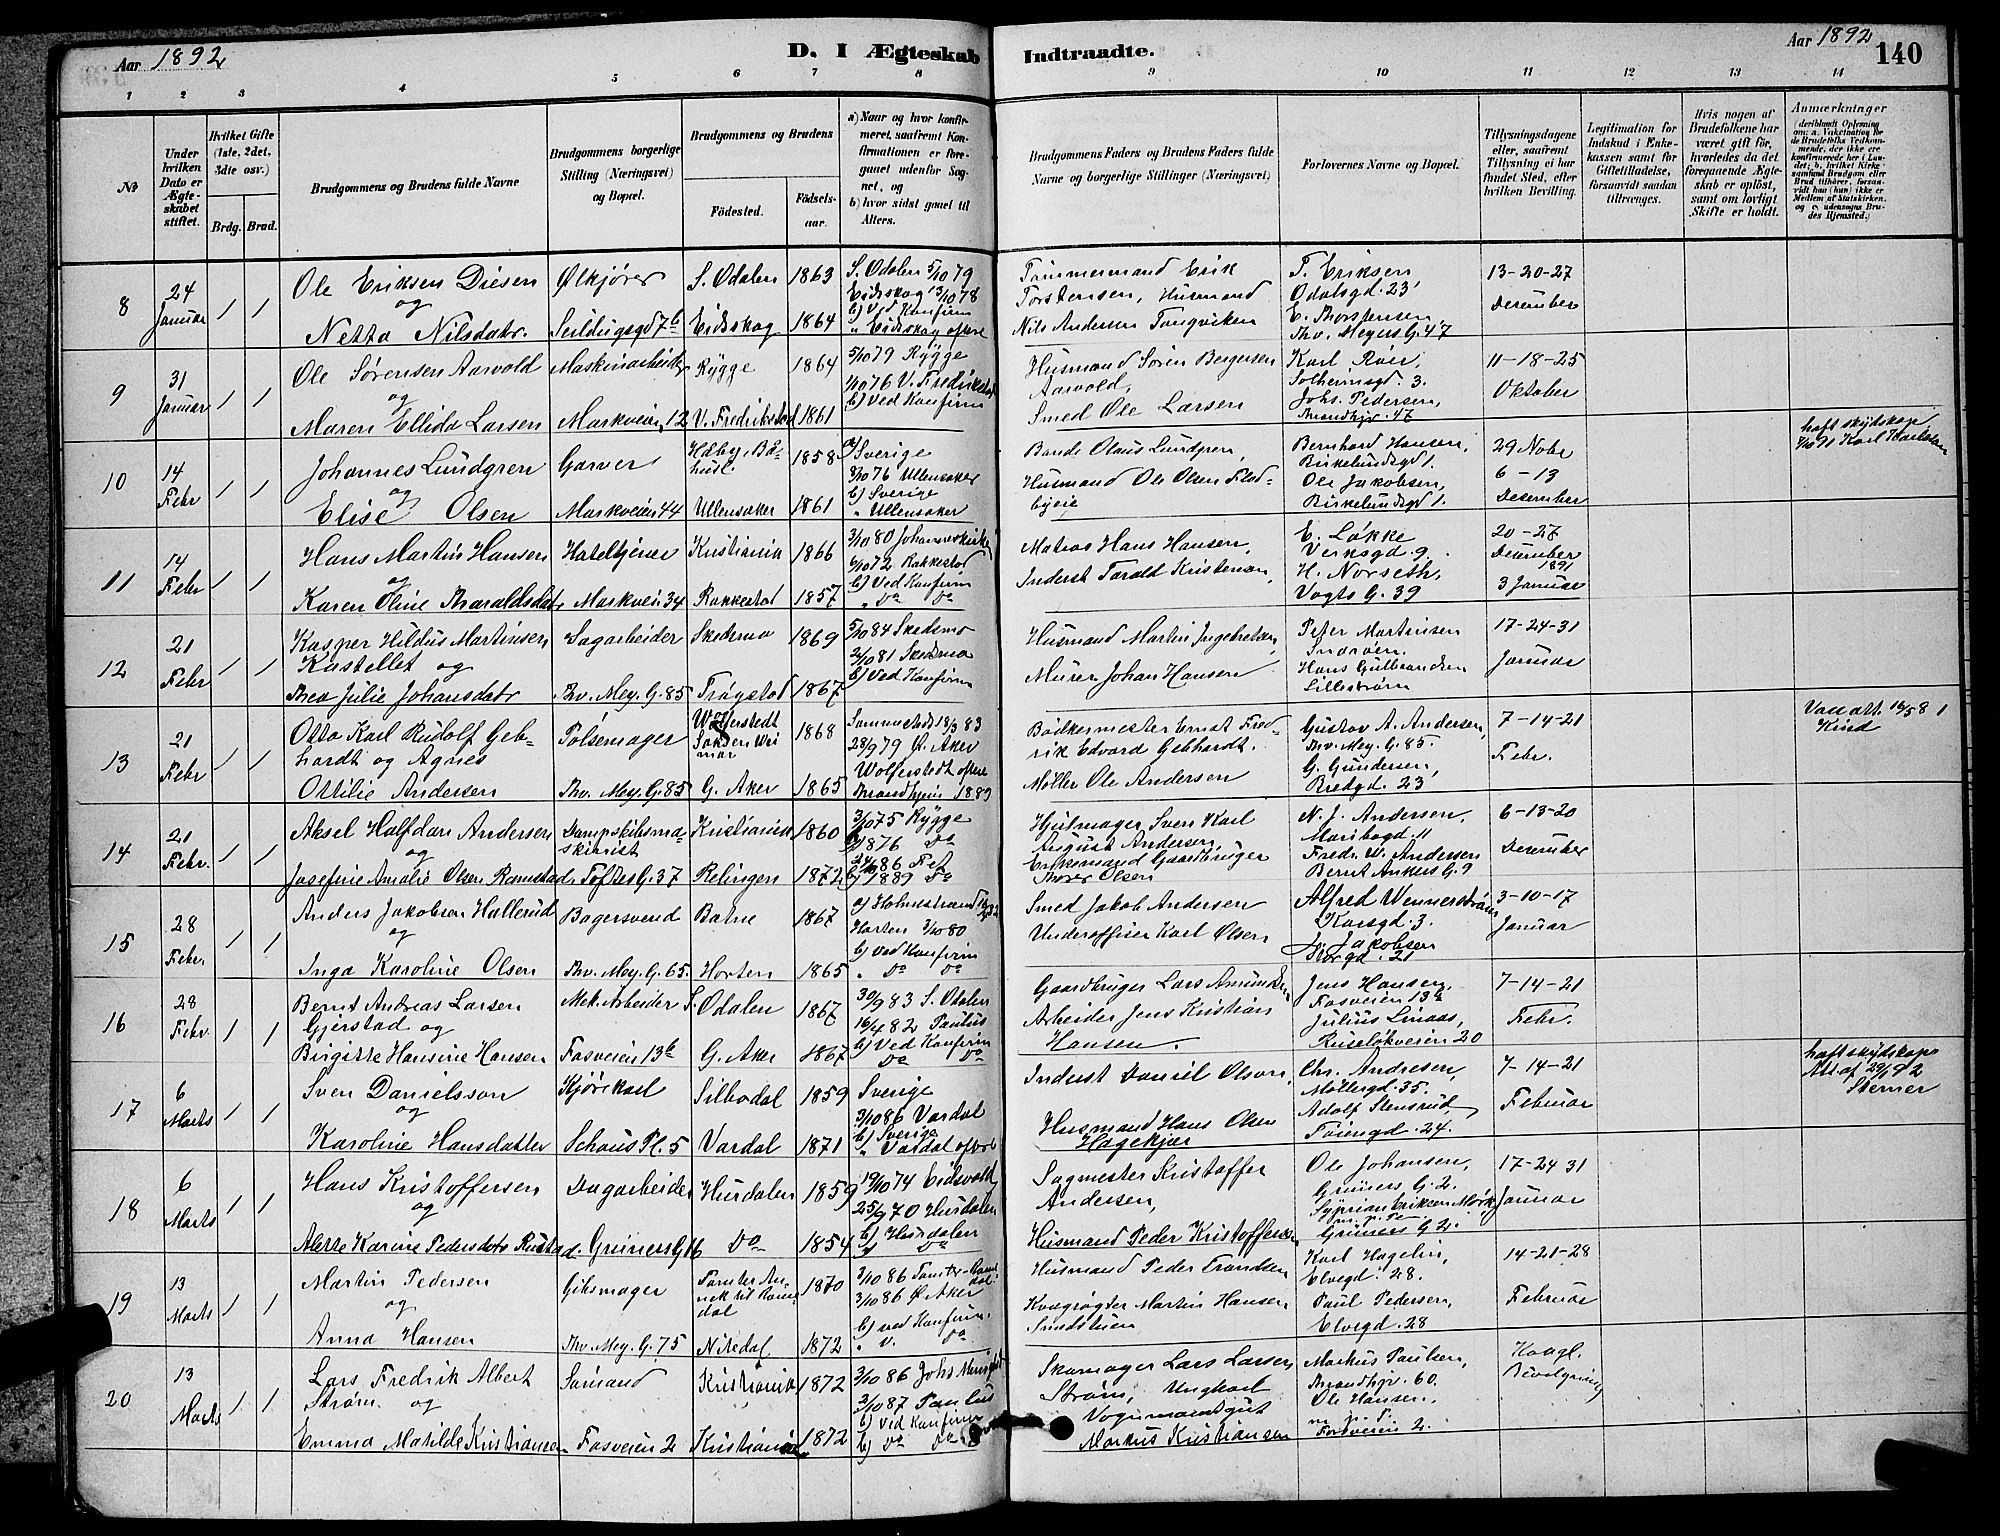 Aar 1892
D. I Ægteskab Indtraadte.
Aar 1892
140
1 2 3 4 5 6 7 8 9 10 11 12 13 14
No
Under hvilken Dato er Ægteskabet stiftet.
Hvilket Gifte (1ste, 2det, 3die osv.)
Brdg. Brud.
Brudgommens og Brudens fulde Navne
Brudgommens borgerlige Stilling (Næringsvei) og Bopæl.
Brudgommens og Brudens
Fødested.
Fødselsaar.
a) Naar og hvor konfirmeret, saafremt Konfirmationen er foregaaet udenfor Sognet, og
b) hvor sidst gaaet til Alters.
Brudgommens Faders og Brudens Faders fulde Navne og borgerlige Stillinger (Næringsvei)
Forlovernes Navne og Bopæl.
Tillysningsdagene eller, saafremt Tillysning ei har fundet Sted, efter hvilken Bevilling.
Legitimation for Indskud i Enkekassen samt for Giftetilladelse, forsaavidt saadan tiltrænges.
Hvis nogen af Brudefolkene har været gift, hvorledes da det foregaaende Ægteskab er opløst, samt om lovligt Skifte er holdt.
Anmærkninger
8 24 Januar 1 1
Ole Eriksen Diesen
og
Netta Nilsdatr.
Ølkjører
Seildugsgd 7b
S. Odalen 1863
Eidskog 1864
S. Odalen 5/10 79
Eidskog 13/10 78
b) Ved Konfirm
" Eidskog oftere
Tømmermand Erik
Torstensen, Husmand
Nils Andersen Tangviken
T. Eriksen
Odalsgd. 23
E. Thorstensen
Thv. Meyers G. 47
13-20-27
Desember
9 31 Januar 1 1
Ole Sørensen Aarvold
og
Maren Ellida Larsen
Maskinarbeider
Markveien 12
Rygge 1864
V. Fredrikstad 1861
5/10 79 Rygge
1/10 76 V. Fredrikstad
b) Ved Konfirm
Husmand Søren Bergersen
Aarvold,
Smed Ole Larsen
Karl Røer,
Solheimsgd. 3.
Johs. Pedersen,
Thrandhjgd. 47
11-18-25
Oktober
10 14 Febr 1 1
Johannes Lundgren
og
Elise Olsen
Garver
Markveien 44
1858
Ullensaker 1861
a) Sverige
8/10 76 Ullensaker
b) Sverige
" Ullensaker
Bonde Olaus Lundgren,
Husmand Ole Olsen
Bernhard Hansen,
Birkelundsgd 1.
Ole Jakobsen,
Birkelundsgd 1.
29 Nobr
6-13
Desember
haft skydskap
11 14 Febr 1 1
Hans Martin Hansen
og
Karen Oline Tharaldsdatr
Hoteltjener
Markvei. 34
Kristiania 1866
Rakkestad 1857
3/10 80 Johanneskirken
6/10 72 Rakkestad
b) Ved Konfirm
" Do Do
Matros Hans Hansen,
Inderst Torald Kristensen,
E. Løkke
Verksgd. 9.
H. Norseth,
Vogts G. 39
20-27
Desember
1891
3 Januar
12 21 Febr 1 1
Kasper Hildus Martinsen
Kastellet og
Thea Julie Johansdatr
Sagarbeider
Thv. Mey. G. 85
Skedsmo 1869
Trøgstad 1867
5/10 84 Skedsmo
2/10 81 Skedsmo
b) Ved Konfirm
Husmand Martin Ingebretsen,
Murer Johan Hansen
Peter Martinsen
Hans Gulbrandsen
Lillestrøm
17-24-31
Januar
13 21 Febr 1 1
Otto Karl Rudolf Geb-
hardt og Agnes
Ottilie Andersen
Pølsemager
Thv. Mey. G. 85
Wolferstedt
Saksen Wei
mar 1868
G. Aker 1865
18/3 83
28/9 79 Ø. Aker
Wolferstedt oftere
Thrandhjem 1889
Bødkermester Ernst Fred-
rik Edvard Gebhardt.
Møller Ole Andersen
Gustav A. Andersen,
Thv. Mey. G. 85.
G. Gundersen,
Bredgd. 23
7-14-21
Febr.
14 21 Febr. 1 1
Aksel Halfdan Andersen
og
Josefine Amalie Olsen Ramstad.
Dampskibsma-
skinist
Toftes G. 37
Kristiania 1860
Relingen 1872
3/10 75 Rygge
1876 Do
86 Fet
1889 Do
Hjulmager Sven Karl
August Andersen,
Enkemand Gaardbruger
Thorer Olsen
N. J. Andersen,
Maribogd. 11
Fredr. W. Andersen
Bernt Ankers G. 9
6-13-20
Desember
15 28 Febr. 1 1
Anders Jakobsen Hallerud
og
Inga Karoline Olsen
Bagersvend
Thv. Mey. G. 65.
Botne 1867
Horten 1865
a) Holmestrand
Horten 3/10 80
b) ved Konfirm
" Do Do
Smed Jakob Andersen
Underofficer Karl Olsen
Alfred Wennerstrøm
Korsgd. 3.
Jakobsen
Storgd. 21
3-10-17
Januar
16 28 Febr 1 1
Bernt Andreas Larsen
Gjerstad og
Birgitte Hansine Hansen
Mek. Arbeider
Fosveien 13b
S. Odalen 1867
G. Aker 1867
30/9 83 S. Odalen
16/4 82 Paulus
b) Ved Konfirm
Do Do
Gaardbruger Lars Amundsen
Arbeider Jens Kristian
Hansen.
Jens Hansen,
Fosveien 13b
Julius Linaas,
Ruseløkveien 20
7-14-21
Febr.
17 6 Marts 1 1
Sven Danielsson
og
Karoline Hansdatter
Kjørekarl
Schous Pl. 5
Silbodal 1859
Vardal 1871
Sverige
3/10 86 Vardal
b) Sverige
" Vardal oftere
Inderst Daniel Olson,
Husmand Hans Olsen
Hagekjær
Chr. Andresen,
Møllergd. 35.
Adolf Stensrud,
Tøiengd. 24.
7-14-21
Februar
haft skydskaps
Att af
Sterner
18 6 Marts 1 1
Hans Kristoffersen
og
Alette Karine Pedersdatr Rustad.
Dagarbeider
Grüners G 16
Hurdalen 1859
Do 1854
19/10 74 Eidsvold
25/9 70 Hurdalen
b) Hurdalen
" Do
Sagmester Kristoffer
Andersen,
Husmand Peder Kristoffersen
Ole Johansen,
Grüners G. 2.
Syprian Eriksen Mørk
Grüners G 2.
17-24 31
Januar
19 13 Marts 1 1
Martin Pedersen
og
Anna Hansen
Gibsmager
Thv. Mey. G. 75
Tomter An-
nek til
dal 1870
Nitedal 1872
3/10 86 Tomter
3/10 86 Ø. Aker
b) ved Konfirm.
" Do
Husmand Peder Trondsen
Kvægrøgter Martin Hansen
Karl Hagelin,
Elvegd. 28.
Paul Pedersen,
Elvegd. 28
14-21-28
Februar
20 13 Marts 1 1
Lars Fredrik Albert
Strøm og
Emma Matilde Kristiansen
Sømand
Fosveien 2
Kristiania 1872
Kristiania 1872
3/10 86 Johs Menighed
3/10 87 Paulus
b) Ved Konfirm
b) Do Do
Skomager Lars Larsen
Strøm, Ungkarl
Vognmandsgut
Markus Kristiansen
Markus Paulsen,
Thrandhgr. 60.
Ole Hansen,
Fosveien 2.
Kongl.
Bevilgning